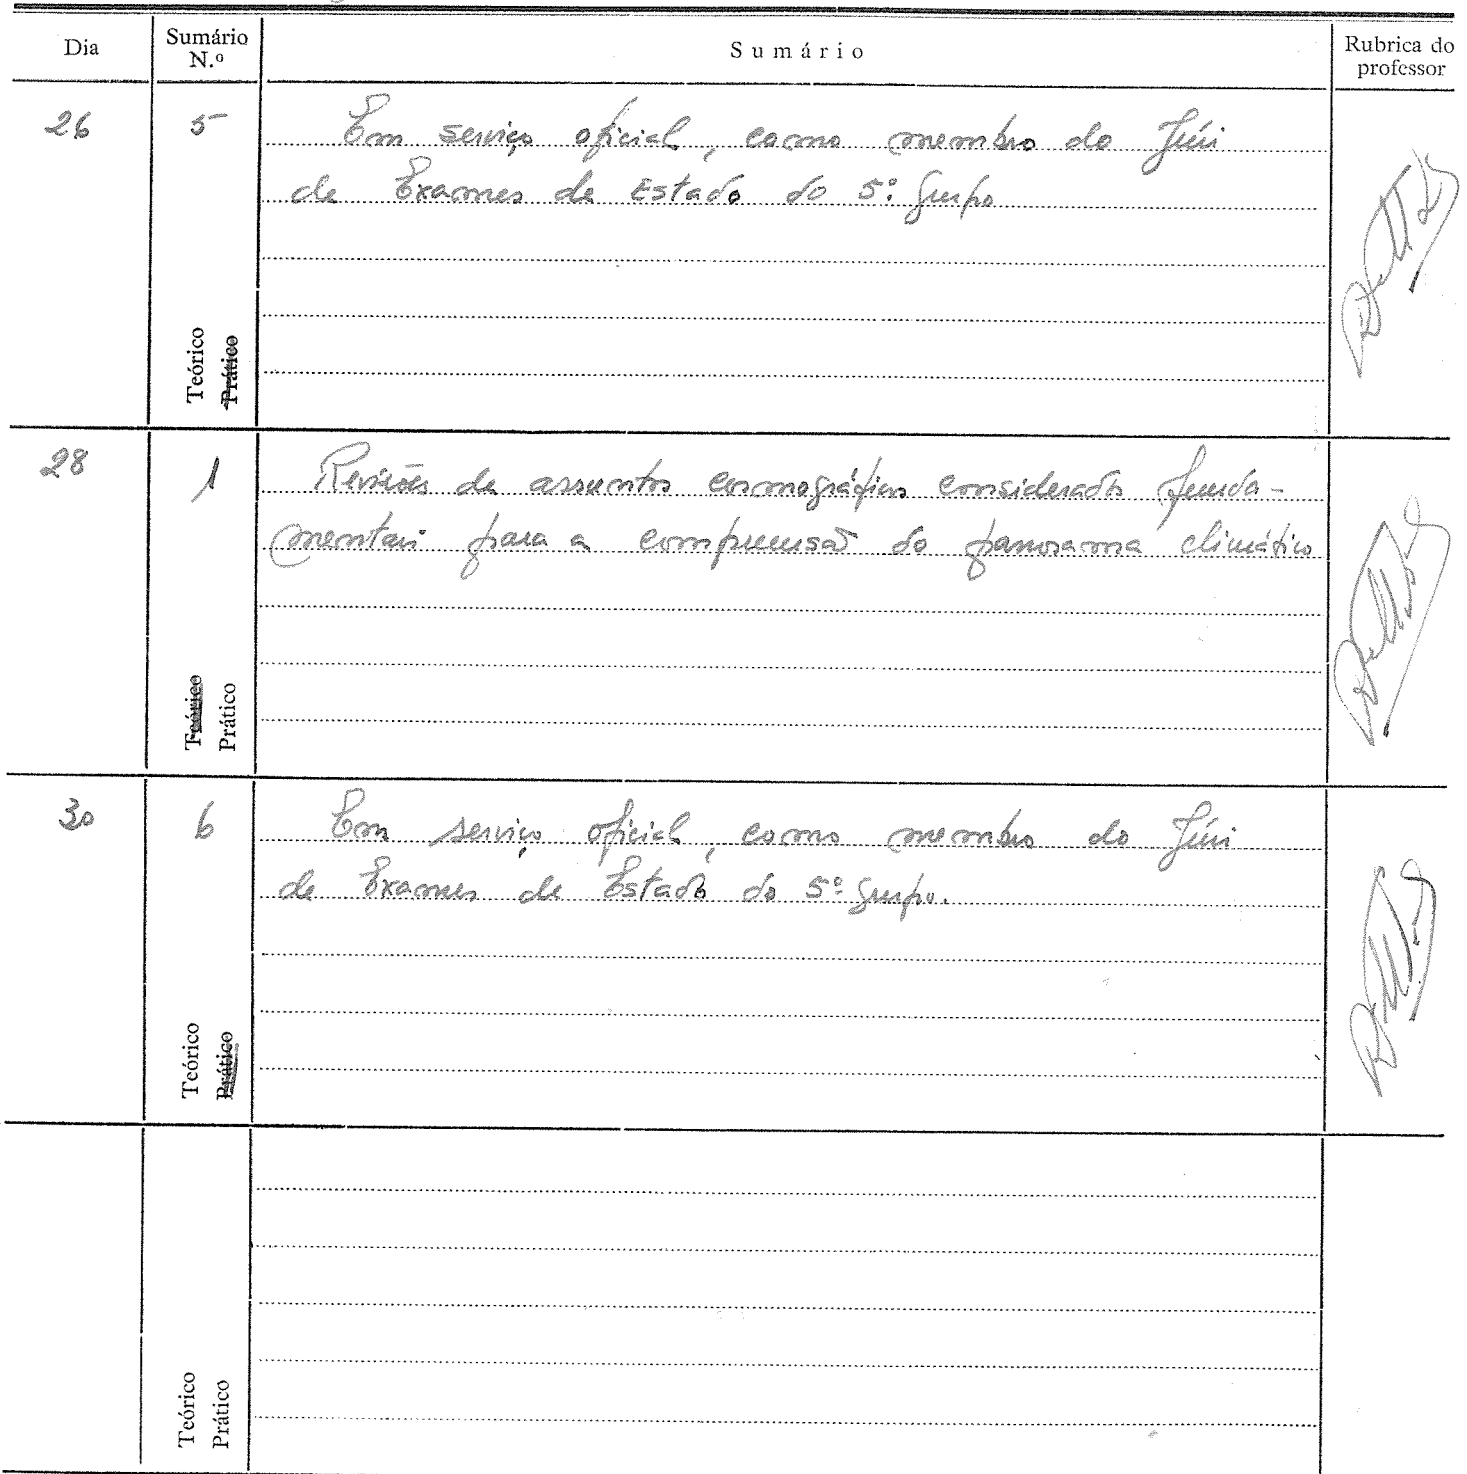 Dia Sumário N.º Sumário Rubrica do professor
26 5 Em serviço oficial, como membro do Júri
de Exames de Estado do 5.º Grupo
Teórico Prático
28 1 Revisões de assuntos cosmográficos considerados funda-
mentais para a compreensão do panorama climático
Teórico Prático
30 6 Em serviço oficial, como membro do Júri
de Exames de Estado do 5º Grupo.
Teórico Prático
Teórico Prático